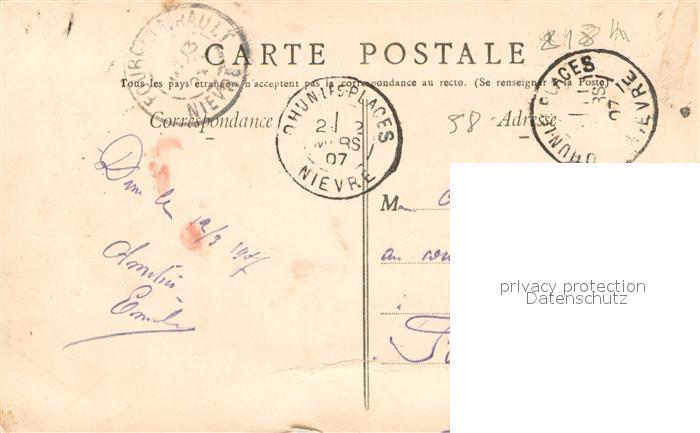 218
FOURCHAMBAULT
13
NIEVRE
CARTE POSTALE
Tous les pays étrangers n'acceptent pas la correspondance au recto. (Se renseigner à la Poste)
Correspondance
58
Adresse
DHUN-LES-PLACES
MARS
07
NIEVRE
DHUN-LES-PLACES
07
NIEVRE
le 12/3 1907
Amitiés
Emile
M
au
privacy protection
Datenschutz